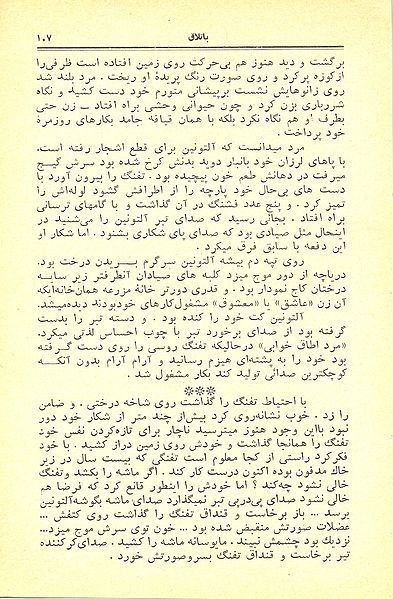 باتلاق
۱۰۷
برگشت و دید هنوز هم بی‌حرکت روی زمین افتاده است ظرفی‌را
ازکوزه پرکرد و روی صورت رنگ پریدهٔ او ریخت . مرد بلند شد
روی زانوهایش نشست برپیشانی متورم خود دست کشید و نگاه
شررباری بزن کرد و چون حیوانی وحشی براه افتاد ــ زن حتی
بطرف او هم نگاه نکرد بلکه با همان قیافه جامد بکارهای روزمرهٔ
خود پرداخت .
مرد میدانست که آلتونین برای قطع اشجار رفته است.
با پاهای لرزان خود بانبار دوید بدنش کرخ شده بود سرش گیج
میرفت در دهانش طعم خون پیچیده بود . تفنگ را بیرون آورد با
دست های بی‌حال خود پارچه را از اطرافش گشود لوله‌اش را
تمیز کرد . و پنج عدد فشنگ در آن گذاشت و با گامهای ترسانی
براه افتاد . بجائی رسید که صدای تبر آلتونین را می‌شنید در
اینحال مثل صیادی بود که صدای پای شکاری بشنود . اما شکار او
این دفعه با سابق فرق میکرد .
روی تپه دم بیشه آلتونین سرگرم بسریدن درخت بود.
دریاچه از دور موج میزد کلبه های صیادان آنطرفتر زیر سایه
درختان کاج نمودار بود . و قدری دورتر خانهٔ مزرعه همان‌خانه‌ایکه
آن زن «عاشق» یا «معشوق» مشغول‌کارهای خودبودند دیده‌میشد.
آلتونین کت خود را کنده بود . و دسته تبر را بدست
گرفته بود از صدای برخورد تبر با چوب احساس لذتی میکرد.
«مرد اطاق خوابی» درحالیکه تفنگ روسی را روی دست گرفته
بود خود را به پشته‌ای هیزم رسانید و آرام آرام بدون آنکه
کوچکترین صدائی تولید کند بکار مشغول شد .
***
با احتیاط تفنگ را گذاشت روی شاخه درختی . و ضامن
را زد . خوب نشانه‌روی کرد بیش‌از چند متر از شکار خود دور
نبود بااین وجود هنوز میترسید ناچار برای تازه‌کردن نفس خود
تفنگ را همانجا گذاشت و خودش روی زمین دراز کشید . با خود
فکرکرد راستی از کجا معلوم است تفنگی که بیست سال در زیر
خاك مدفون بوده اکنون درست کار کند . اگر ماشه را بکشد وتفنگ
خالی نشود چه‌کند ؟ اما خودش را اینطور قانع کرد که فرضا هم
خالی نشود صدای پی‌درپی تبر نمیگذارد صدای ماشه بگوش‌آلتونین
برسد ... باز برخاست و قنداق تفنگ را گذاشت روی کتفش ...
عضلات صورتش منقبض شده بود ... خون توی سرش موج میزد...
نزدیك بود چشمش نبیند . مایوسانه ماشه را کشید . صدای‌کرکننده
تیر برخاست و قنداق تفنگ بسروصورتش خورد .